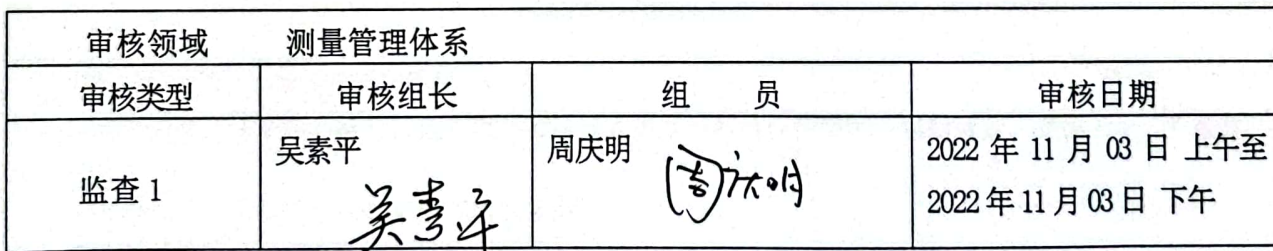 审核领域 测量管理体系
审核类型 审核组长 组 员 审核日期
监查 1 吴素平 周庆明 2022 年 11 月 03 日 上午至
2022 年 11 月 03 日 下午
吴素平 周庆明